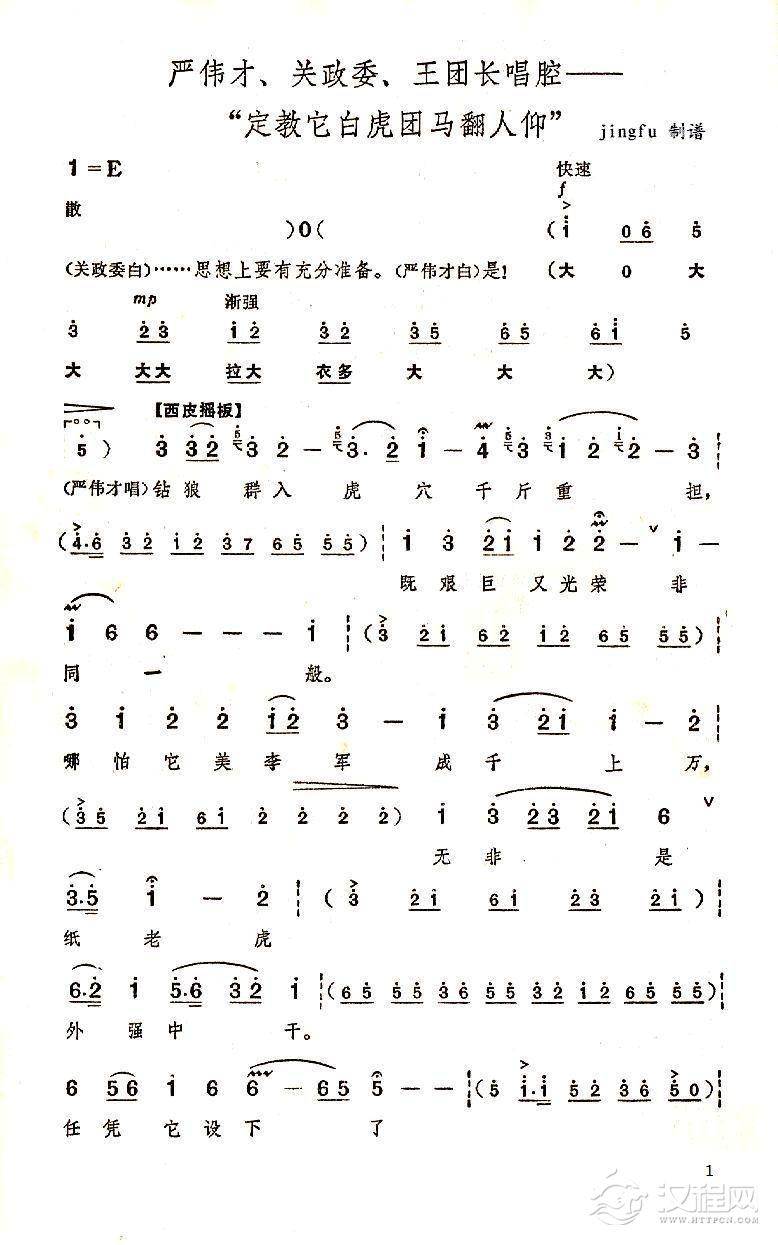 严伟才、关政委、王团长唱腔——
“定教它白虎团马翻人仰” jingfu 制谱
1=E 快速
f
散 )0( (i 0 6 5
(关政委白)……思想上要有充分准备。(严伟才白)是! (大 0 大
mp 渐强
3 2 3 1 2 3 2 3 5 6 5 6 1 5
大 大大 拉大 衣多 大 大 大)
【西皮摇板】
5 ) 3 3 2 3 2 — 3. 2 1 — 4 3 1 2 2 — 3
(严伟才唱)钻狼群入虎穴千斤重担,
(4.6 3 2 1 2 3 7 6 5 5 5) 1 3 2 1 1 2 2 — ∨ 1 —
既艰巨又光荣非
1 6 6 — — 1 (3 2 1 6 2 1 2 6 5 5 5)
同一般。
3 1 2 2 1 2 3 — 1 3 2 1 1 — 2
哪怕它美李军成千上万,
(3 5 2 1 6 1 2 2 2 2) 1 3 2 3 2 1 6 ∨
无非是
3.5 1 — 2 (3 2 1 6 1 2 1 6 1)
纸老虎
6.2 1 5.6 3 2 1 (6 5 5 5 3 2 3 5 3 2 1 2 6 5 5 5)
外强中干。
6 5 6 1 6 6 — 6 5 5 — — (5 1.1 6 5 3 2 3 6 5 0)
任凭它设下了
1
汉程网
WWW.HTTPCN.COM